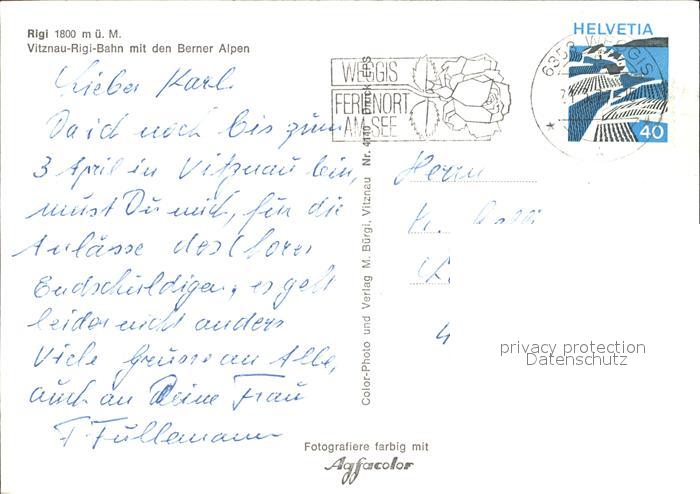 Rigi 1800 m ü. M.
Vitznau-Rigi-Bahn mit den Berner Alpen
Lieber Karl.
Da ich noch bis zum
3 April in Vitznau bin,
must Du mich, für die
Anlässe des Chores
Endschuldigen, es geht
leider nicht anders
Viele Grüsse an Alle,
auch an Deine Frau
F. Füllemann
WEGGIS
FERIENORT
AM SEE
6353 WEGGIS
HELVETIA
40
Herrn
K.
Color-Photo und Verlag M. Bürgi, Vitznau Nr. 4140 Druck EPS
privacy protection
Datenschutz
Fotografiere farbig mit
Agfacolor